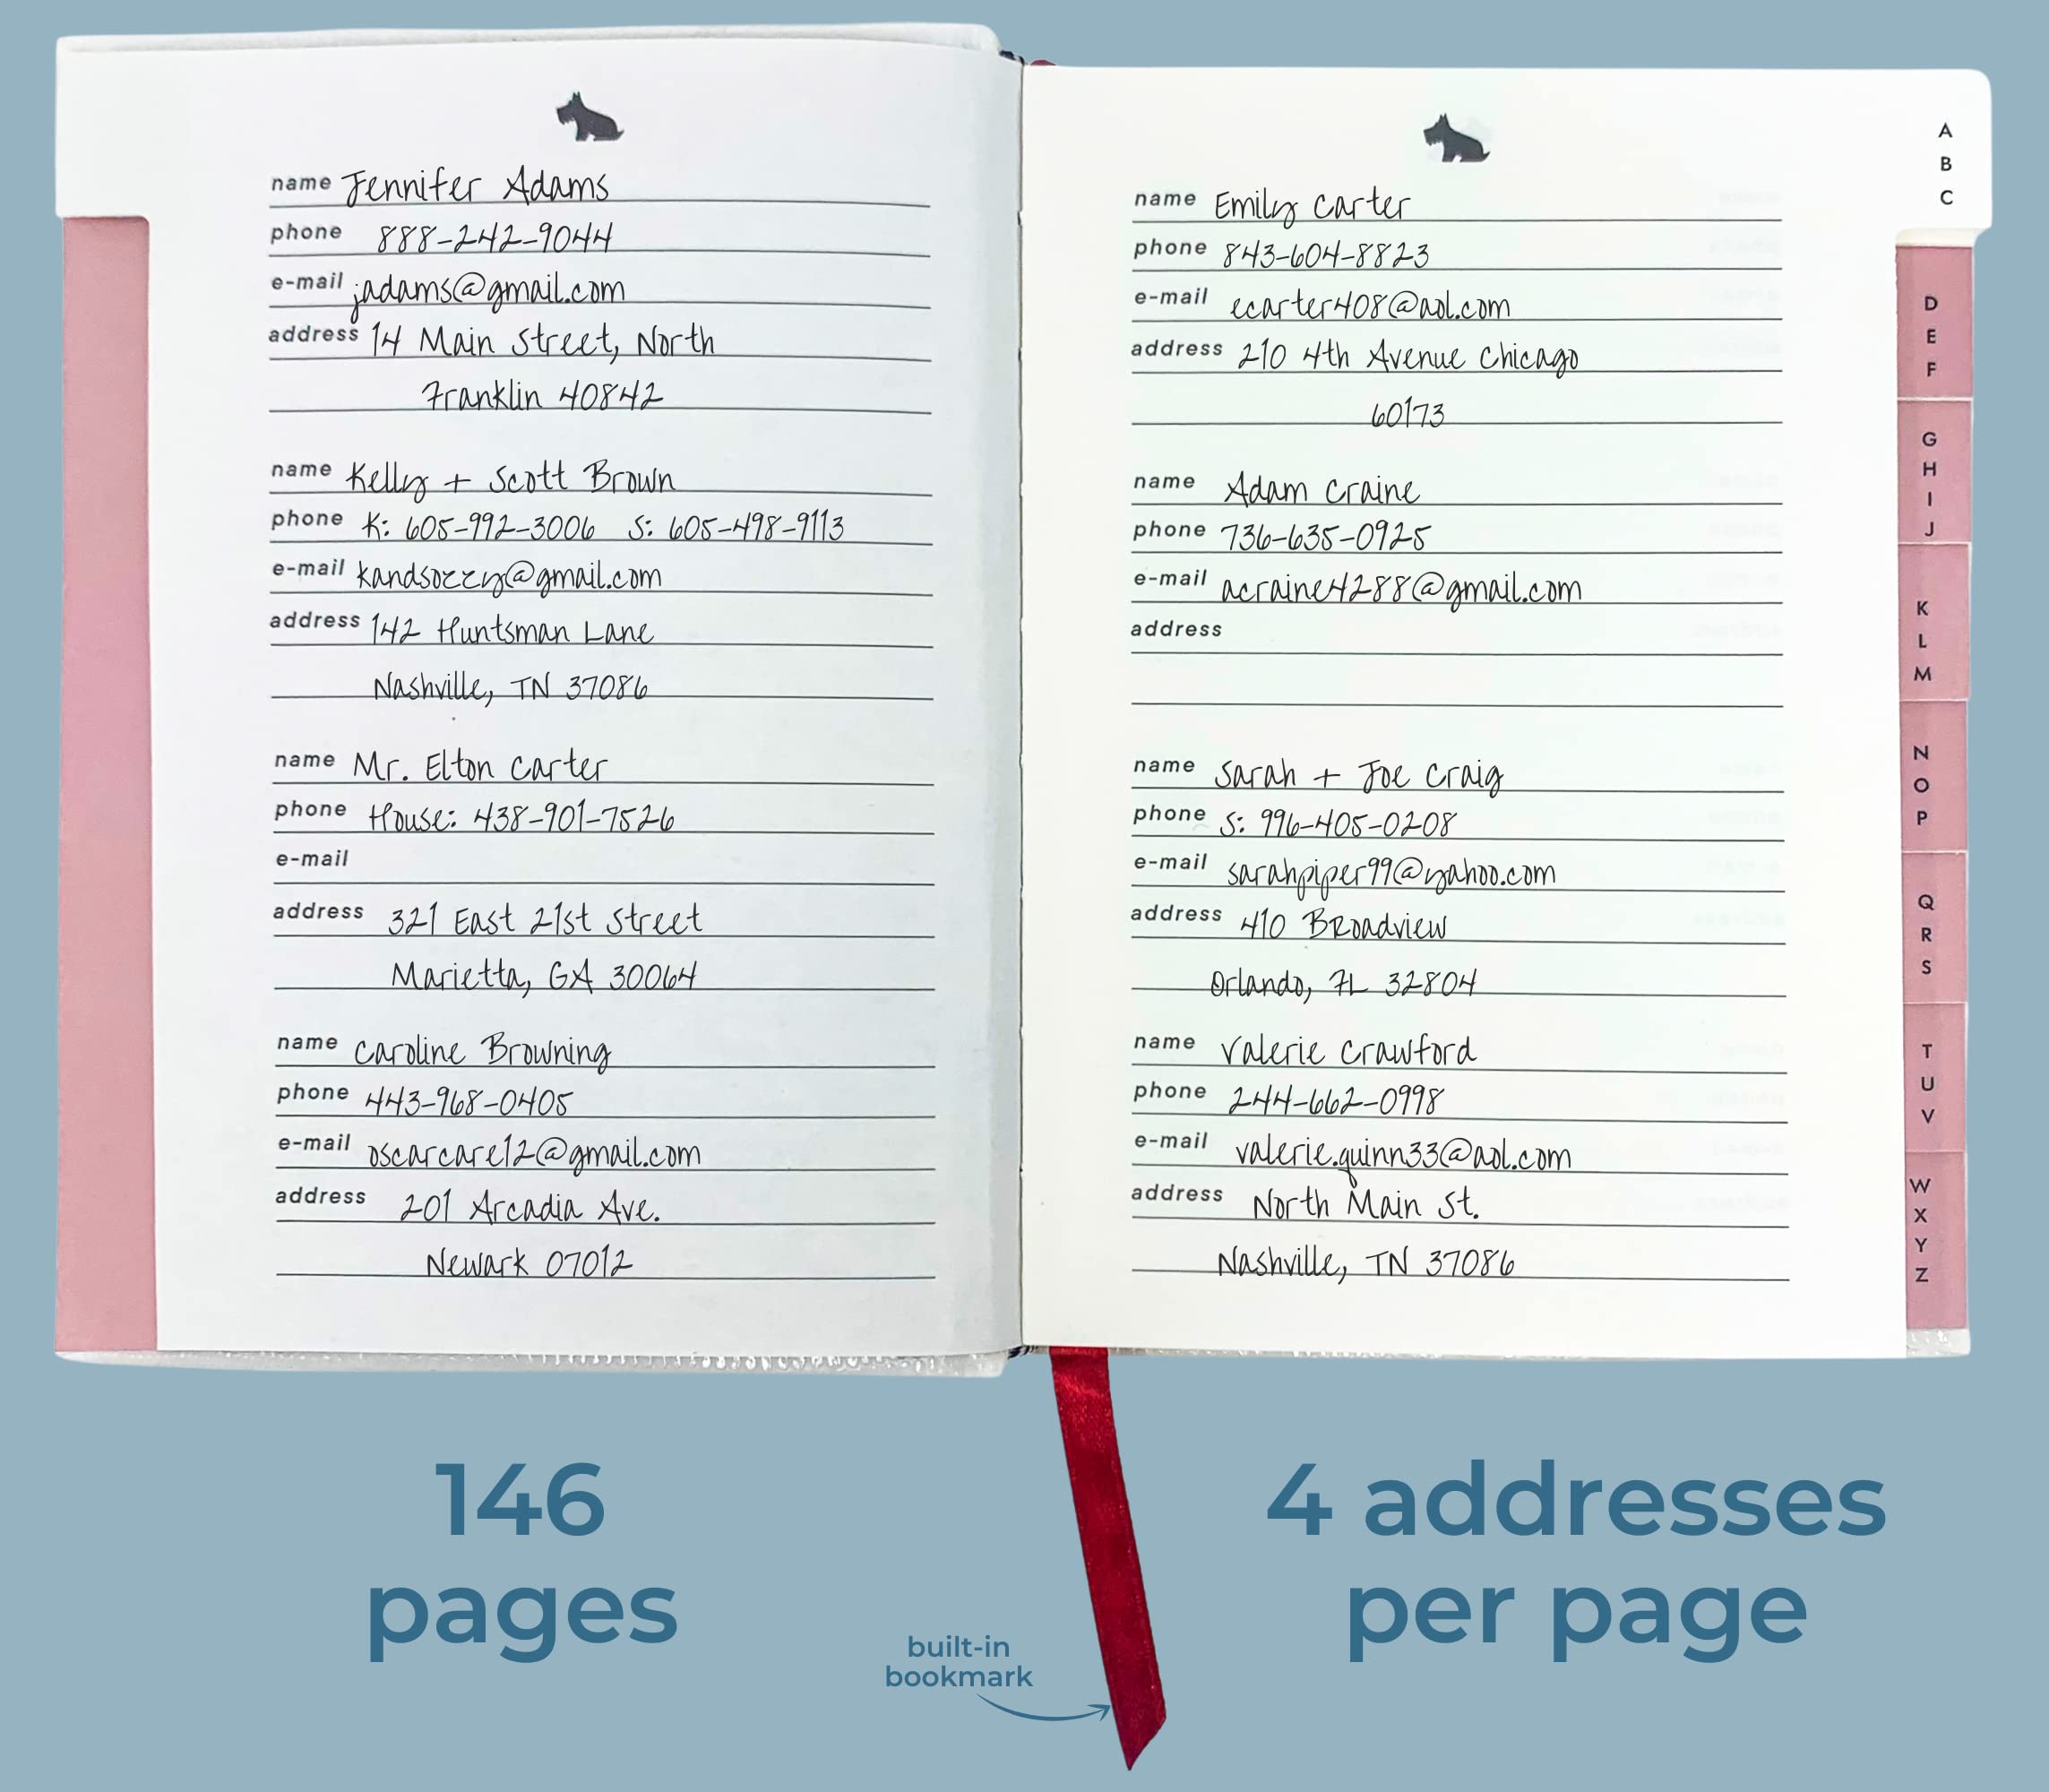 name Jennifer Adams
phone 888-242-9044
e-mail jadams@gmail.com
address 14 Main Street, North
Franklin 40842
name Kelly + Scott Brown
phone K: 605-992-3006 S: 605-498-9113
e-mail kandsozzy@gmail.com
address 142 Huntsman Lane
Nashville, TN 37086
name Mr. Elton Carter
phone House: 438-901-7526
e-mail
address 321 East 21st Street
Marietta, GA 30064
name Caroline Browning
phone 443-968-0405
e-mail oscarcare12@gmail.com
address 201 Arcadia Ave.
Newark 07012
name Emily Carter
phone 843-604-8823
e-mail ecarter408@aol.com
address 210 4th Avenue Chicago
60173
name Adam Craine
phone 736-635-0925
e-mail acraine4288@gmail.com
address
name Sarah + Joe Craig
phone S: 996-405-0208
e-mail sarahpiper99@yahoo.com
address 410 Broadview
Orlando, FL 32804
name Valerie Crawford
phone 244-662-0998
e-mail valerie.quinn33@aol.com
address North Main St.
Nashville, TN 37086
A
B
C
D
E
F
G
H
I
J
K
L
M
N
O
P
Q
R
S
T
U
V
W
X
Y
Z
146
pages
built-in
bookmark
4 addresses
per page